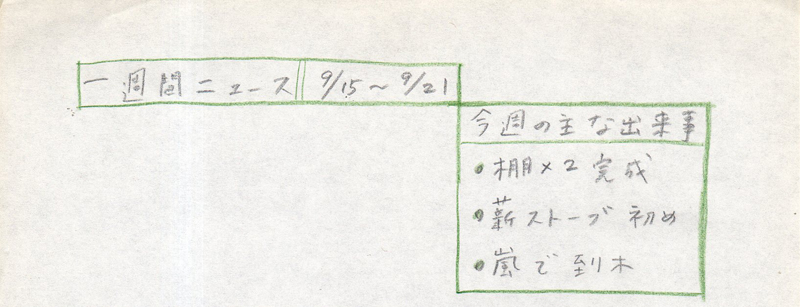 一週間ニュース 9/15～9/21
今週の主な出来事
・棚×2 完成
・薪ストーブ 初め
・嵐で 到木